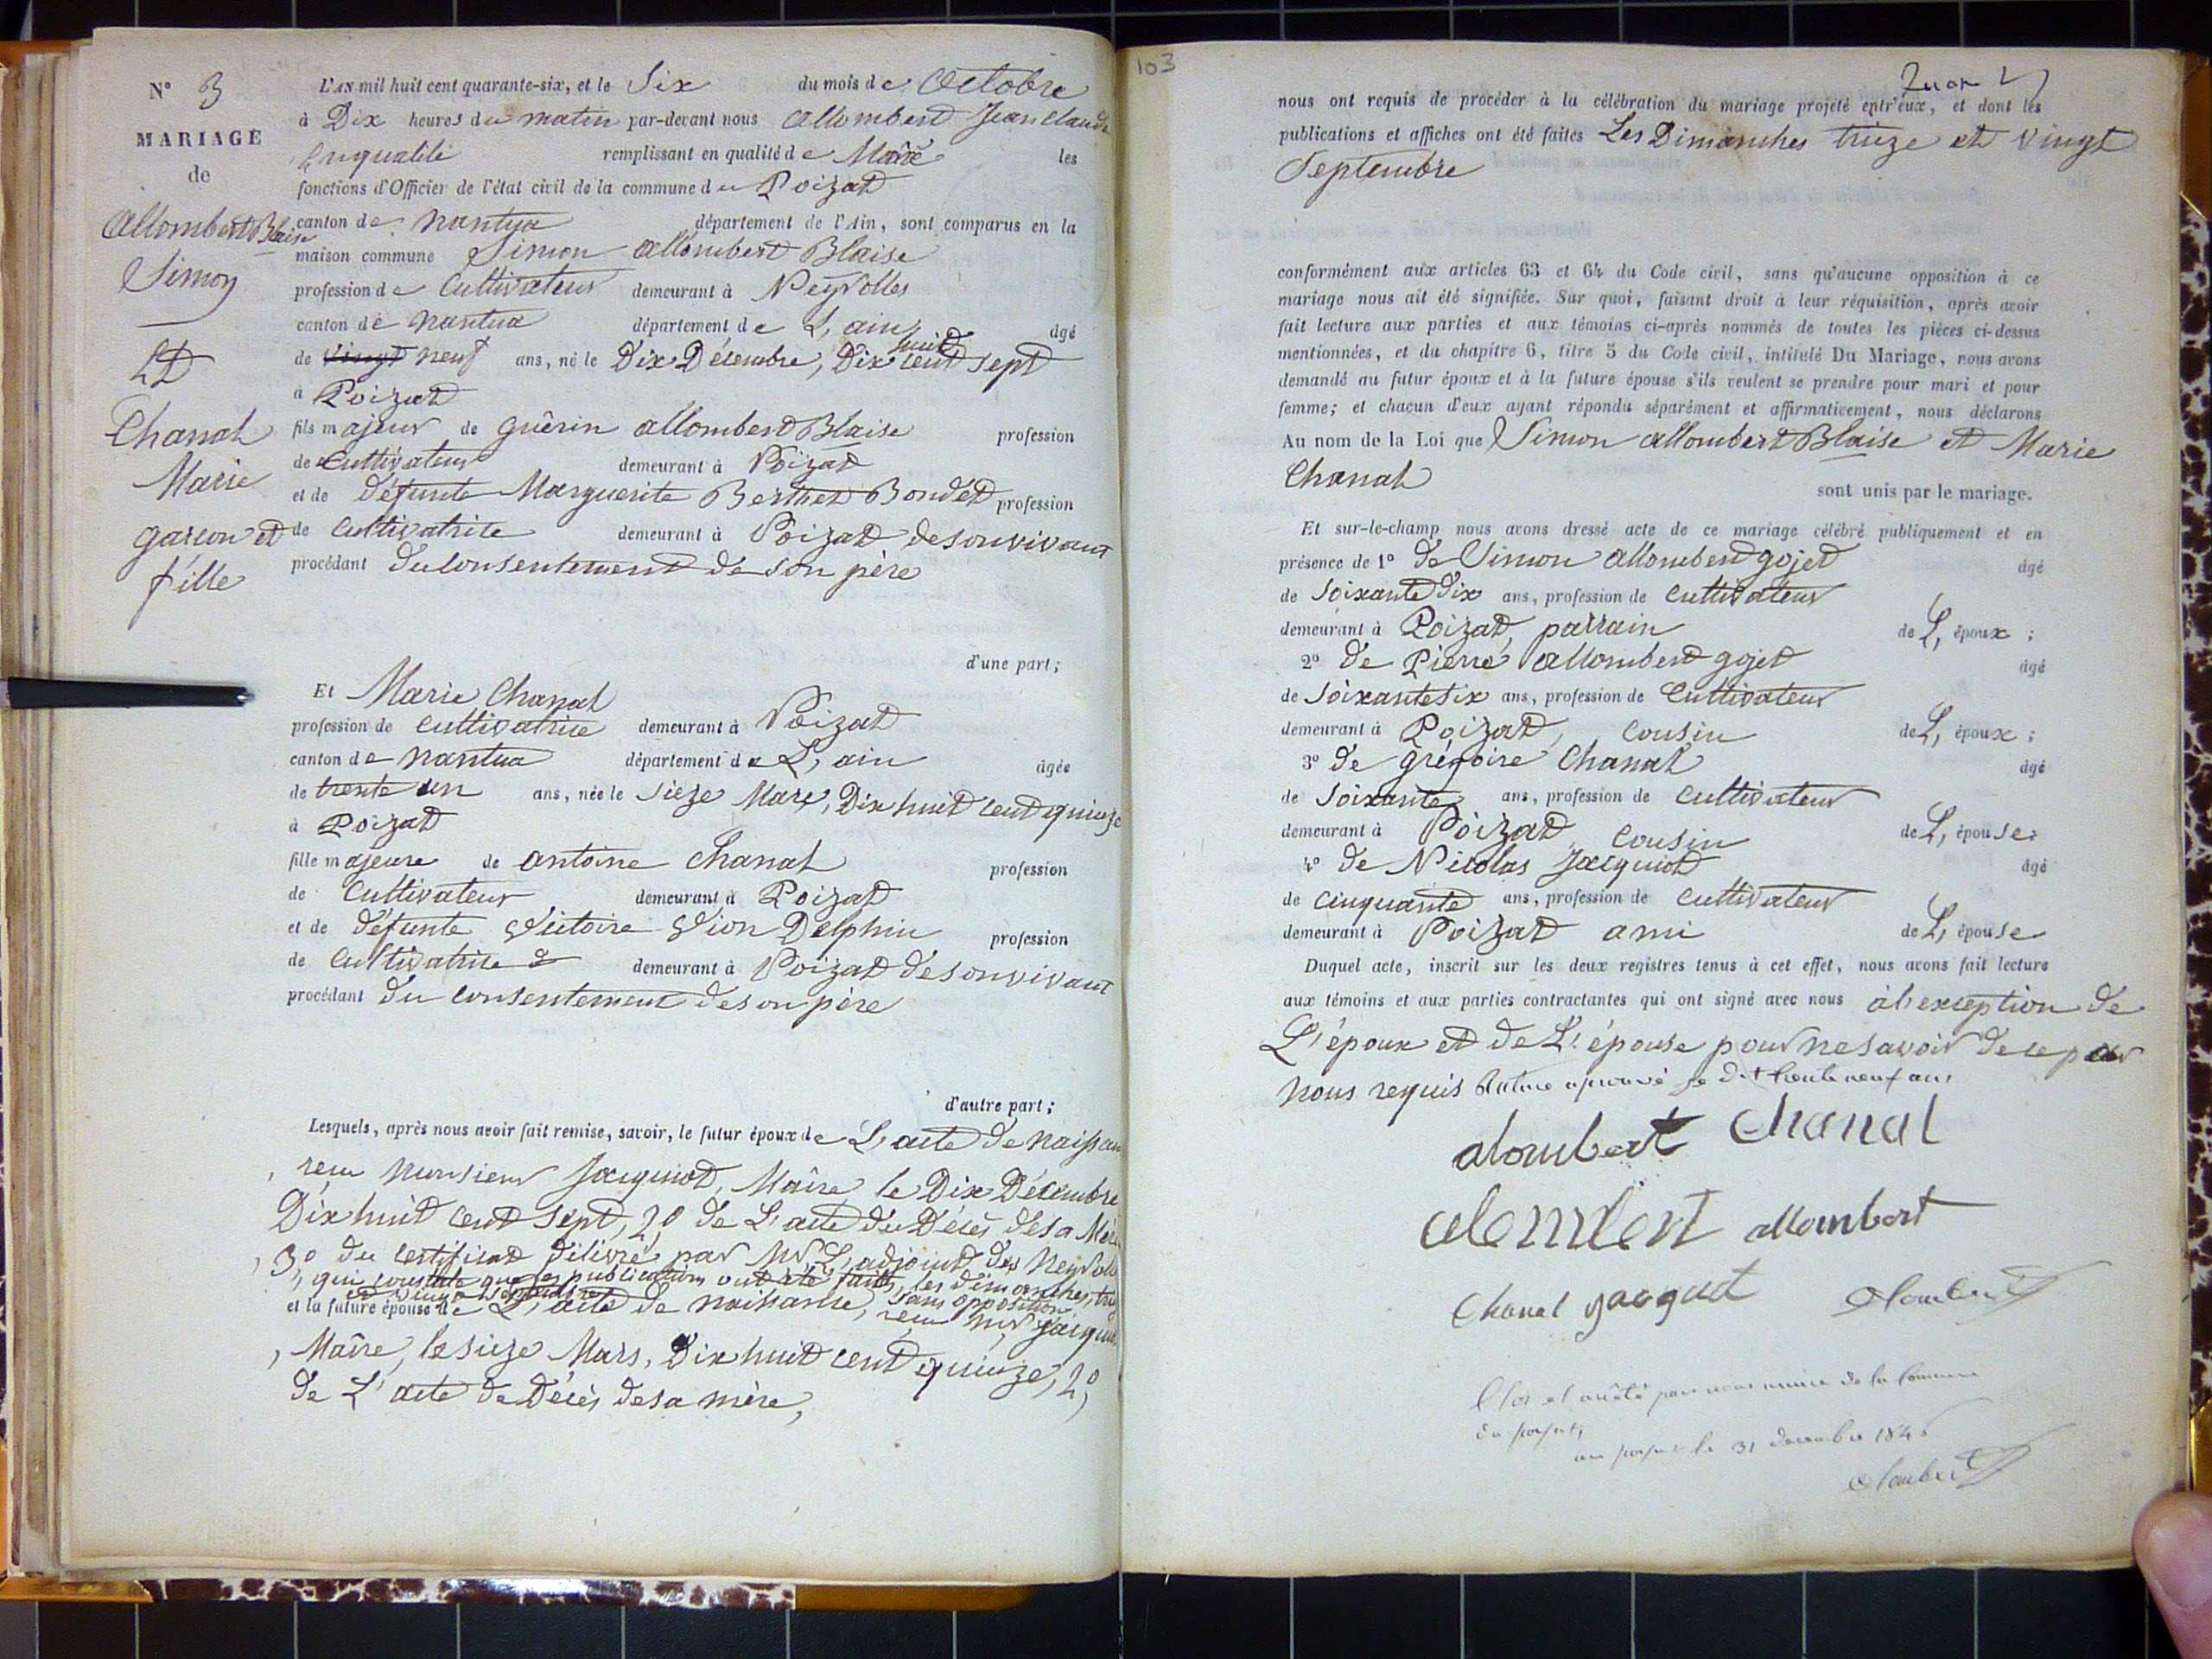 N° 3
MARIAGE
de
Allombert Blaise
Simon
Et
Chanal
Marie
garcon et
fille
L'AN mil huit cent quarante-six, et le Six du mois de Octobre
à Dix heures du matin par-devant nous Allombert Jean Claude
Enqualité remplissant en qualité de Maire les
fonctions d'Officier de l'état civil de la commune du Poizat
canton de Nantua département de l'Ain, sont comparus en la
maison commune Simon Allombert Blaise
profession de Cultivateur demeurant à Neyrolles
canton de Nantua département de L, ain âgé
de vingt neuf ans, né le Dix Décembre, Dix huit cent sept
à Poizat
fils majeur de guérin allombert Blaise profession
de Cultivateur demeurant à Poizat
et de défunte Marguerite Berthet Bondet profession
de Cultivatrice demeurant à Poizat desonvivant
procédant du Consentement de son père
d'une part;
Et Marie Chanal
profession de cultivatrice demeurant à Poizat
canton de Nantua département de L, ain âgée
de trente un ans, née le sieze Mars, Dix huit cent quinze
à Poizat
fille majeure de antoine Chanal profession
de Cultivateur demeurant à Poizat
et de défunte Victoire Vion Delphin profession
de Cultivatrice demeurant à Poizat desonvivant
procédant du consentement desonpère
d'autre part;
Lesquels, après nous avoir fait remise, savoir, le futur époux de L, acte de naissan
, reçu Monsieur Jacquiot, Maire, le Dix Décembre
Dix huit cent sept, 2° de L'acte du Décès desa Mère
, 3° du certificat délivré par Mr L, adjoint des Neyrolle
, qui constate que les publications ont été faites, les dimanches, trei
et vingt septembre sans opposition
et la future épouse de L, acte de naissance, reçu Mr Jacquio
, Maire, le sieze Mars, Dix huit cent quinze, 2°
de L'acte de Décès desa mère,
103
nous ont requis de procéder à la célébration du mariage projeté entr'eux, et dont les
publications et affiches ont été faites Les Dimanches treize et vingt
Septembre
conformément aux articles 63 et 64 du Code civil, sans qu'aucune opposition à ce
mariage nous ait été signifiée. Sur quoi, faisant droit à leur réquisition, après avoir
fait lecture aux parties et aux témoins ci-après nommés de toutes les pièces ci-dessus
mentionnées, et du chapitre 6, titre 5 du Code civil, intitulé Du Mariage, nous avons
demandé au futur époux et à la future épouse s'ils veulent se prendre pour mari et pour
femme; et chacun d'eux ayant répondu séparément et affirmativement, nous déclarons
Au nom de la Loi que Simon allombert Blaise et Marie
Chanal sont unis par le mariage.
Et sur-le-champ nous avons dressé acte de ce mariage célébré publiquement et en
présence de 1° de Simon allombert gojet âgé
de Soixante Dix ans, profession de cultivateur
demeurant à Poizat, parrain de L, époux;
2° de Pierre allombert gojet âgé
de Soixantesix ans, profession de Cultivateur
demeurant à Poizat, cousin de L, époux;
3° de grégoire Chanal âgé
de Soixante ans, profession de cultivateur
demeurant à Poizat cousin de L, épouse;
4° de Nicolas Jacquiot âgé
de cinquante ans, profession de cultivateur
demeurant à Poizat ami de L, épouse
Duquel acte, inscrit sur les deux registres tenus à cet effet, nous avons fait lecture
aux témoins et aux parties contractantes qui ont signé avec nous àl'exception de
L'époux et de L'épouse pour nesavoir dece par
nous requis Rature aprouvé se dit trente neuf ans
alombert Chanal
alombert allombert
Chanal jacquiot alombert
Clos et arrêté par nous maire de la Commune
du poizat,
au poizat le 31 decembre 1846
alombert